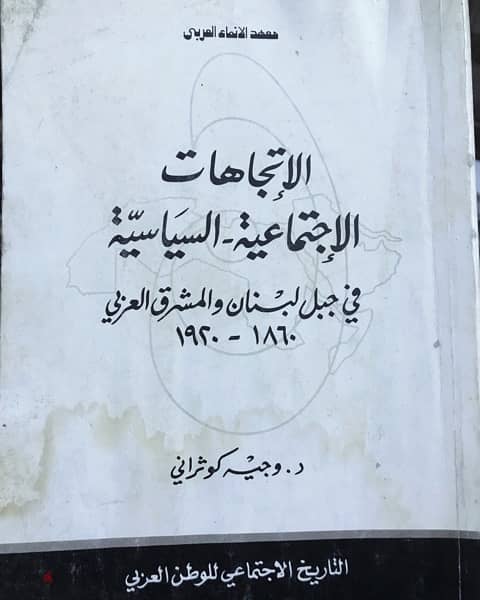 معهد الانماء العربي
الإتجاهات
الإجتماعية - السيَاسيّة
في جبل لبنان والمشرق العربي
١٨٦٠ - ١٩٢٠
د. وجيه كوثراني
التاريخ الاجتماعي للوطن العربي